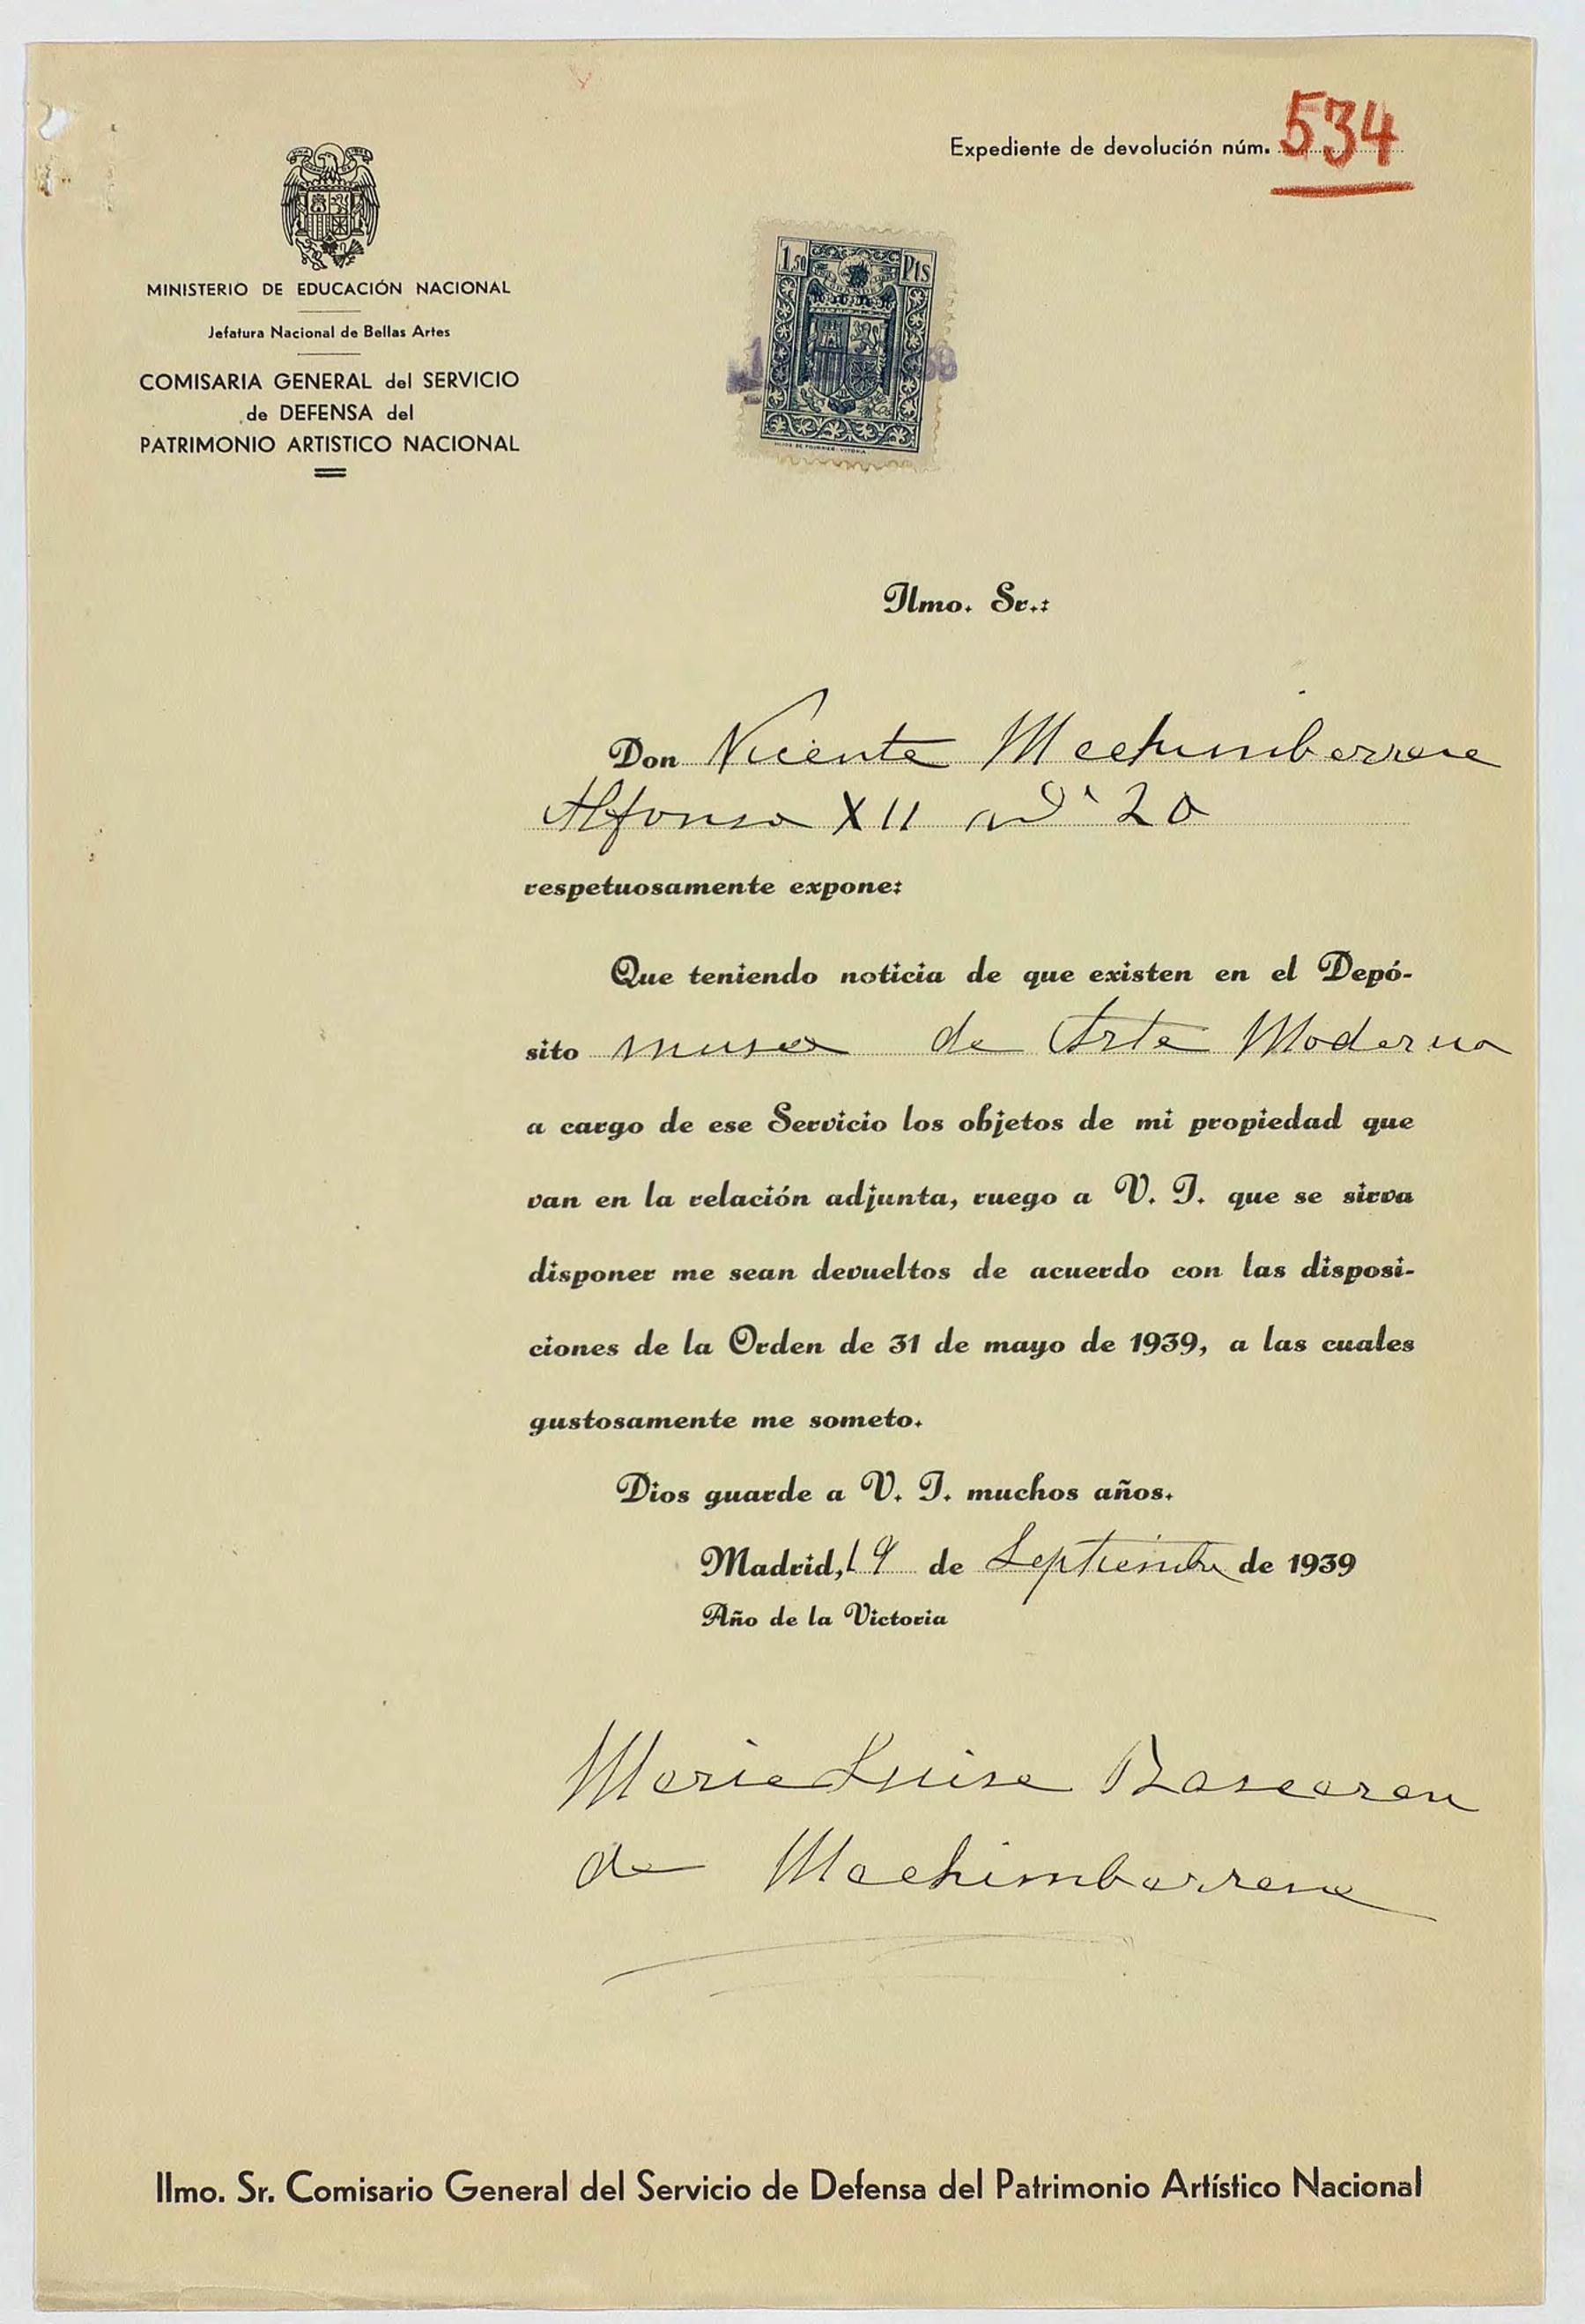 Expediente de devolución núm. 534
MINISTERIO DE EDUCACIÓN NACIONAL
Jefatura Nacional de Bellas Artes
COMISARIA GENERAL del SERVICIO
de DEFENSA del
PATRIMONIO ARTISTICO NACIONAL
1,50 Pts
HIJOS DE FOURNIER-VITORIA
Ilmo. Sr.:
Don Vicente Machimbarrena
Alfonso XII nº 20
respetuosamente expone:
Que teniendo noticia de que existen en el Depó-
sito museo de Arte Moderno
a cargo de ese Servicio los objetos de mi propiedad que
van en la relación adjunta, ruego a V. I. que se sirva
disponer me sean devueltos de acuerdo con las disposi-
ciones de la Orden de 31 de mayo de 1939, a las cuales
gustosamente me someto.
Dios guarde a V. I. muchos años.
Madrid, 19 de Septiembre de 1939
Año de la Victoria
Maria Luisa Bascaran
de Machimbarrena
Ilmo. Sr. Comisario General del Servicio de Defensa del Patrimonio Artístico Nacional